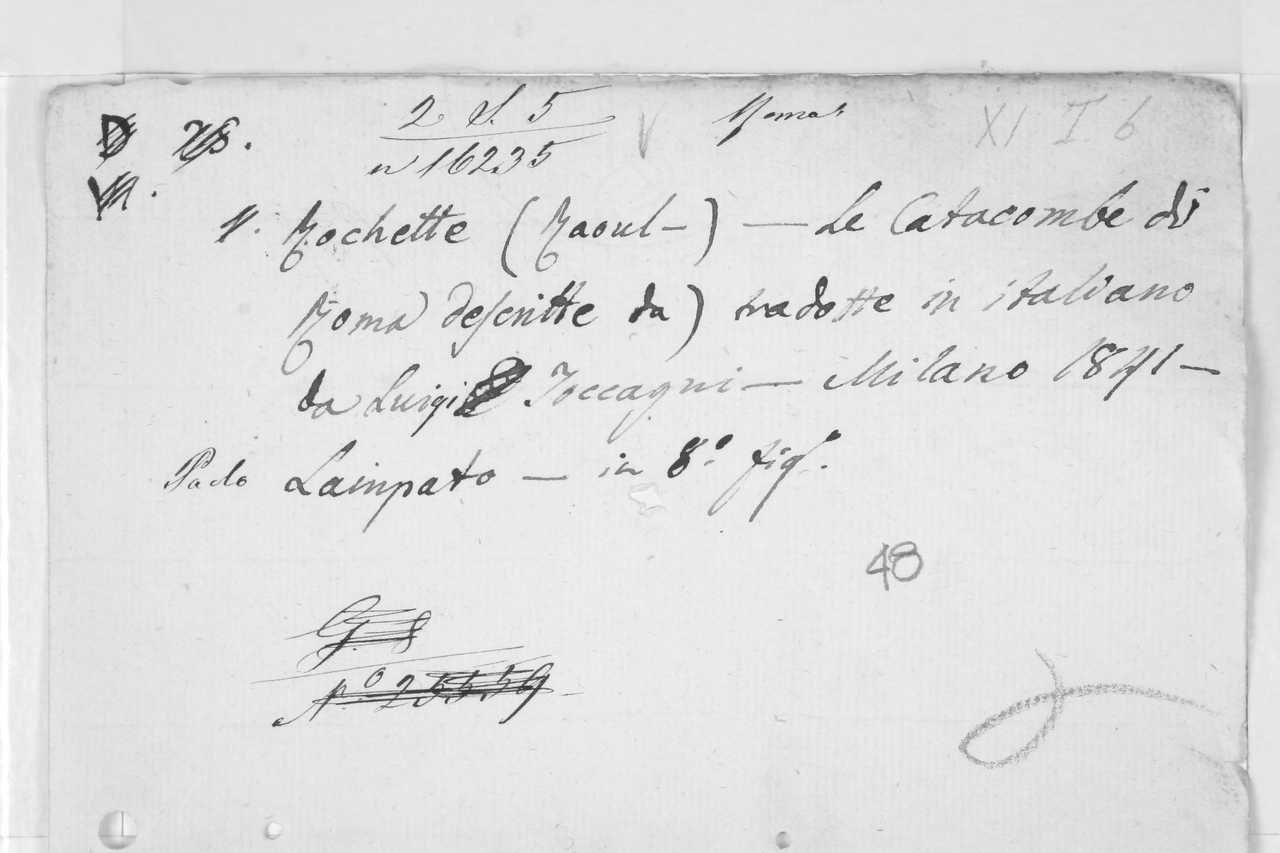 2 S. 5 Roma XI I 6
n 16235
V. Rochette (Raoul-) — Le Catacombe di
Roma descritte da) tradotte in italiano
da Luigi Toccagni — Milano 1841 —
Paolo Lampato — in 8.° fig.
48
G. 8
N.° 25559